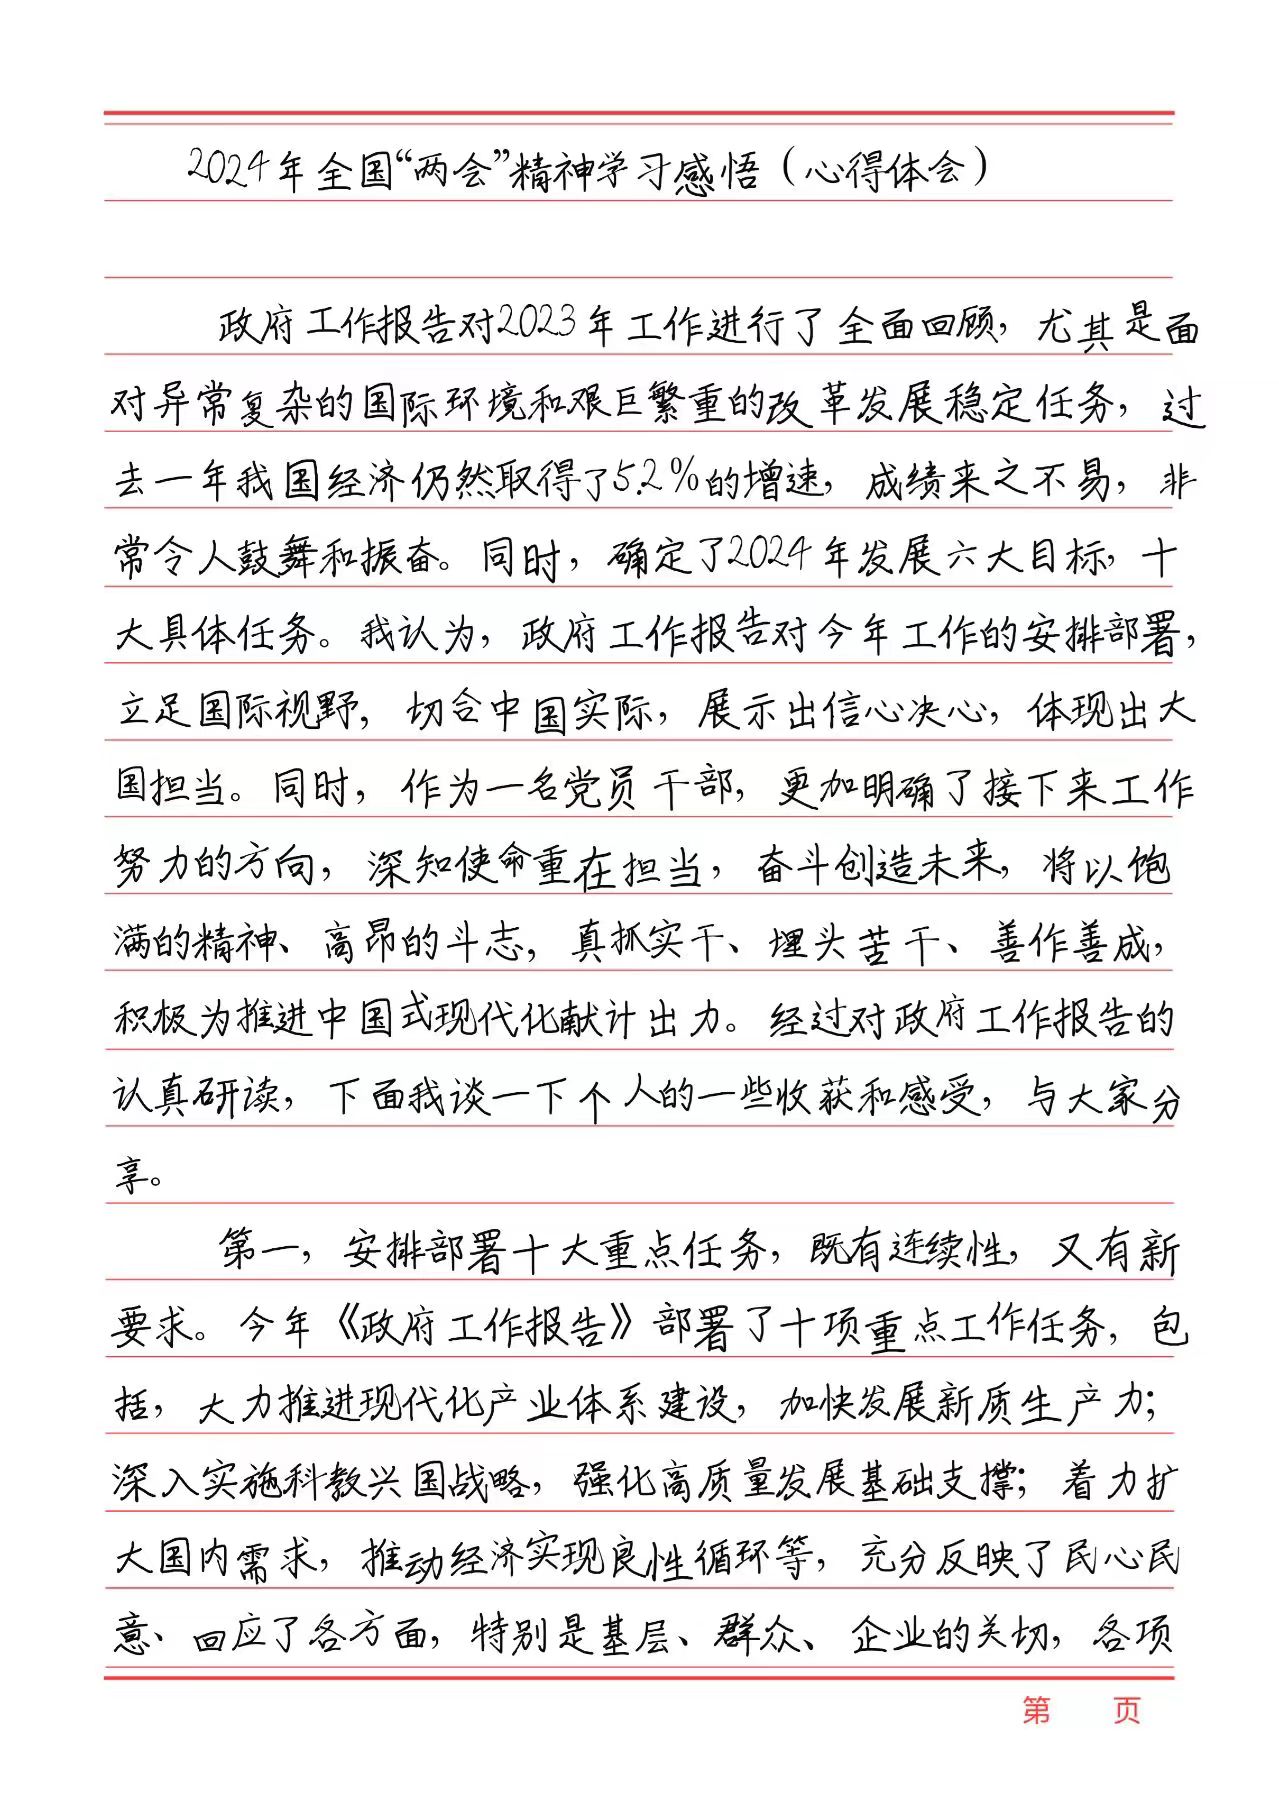 2024年全国“两会”精神学习感悟（心得体会）
政府工作报告对2023年工作进行了全面回顾，尤其是面
对异常复杂的国际环境和艰巨繁重的改革发展稳定任务，过
去一年我国经济仍然取得了5.2%的增速，成绩来之不易，非
常令人鼓舞和振奋。同时，确定了2024年发展六大目标，十
大具体任务。我认为，政府工作报告对今年工作的安排部署，
立足国际视野，切合中国实际，展示出信心决心，体现出大
国担当。同时，作为一名党员干部，更加明确了接下来工作
努力的方向，深知使命重在担当，奋斗创造未来，将以饱
满的精神、高昂的斗志，真抓实干、埋头苦干、善作善成，
积极为推进中国式现代化献计出力。经过对政府工作报告的
认真研读，下面我谈一下个人的一些收获和感受，与大家分
享。
第一，安排部署十大重点任务，既有连续性，又有新
要求。今年《政府工作报告》部署了十项重点工作任务，包
括，大力推进现代化产业体系建设，加快发展新质生产力；
深入实施科教兴国战略，强化高质量发展基础支撑；着力扩
大国内需求，推动经济实现良性循环等，充分反映了民心民
意、回应了各方面，特别是基层、群众、企业的关切，各项
第 页